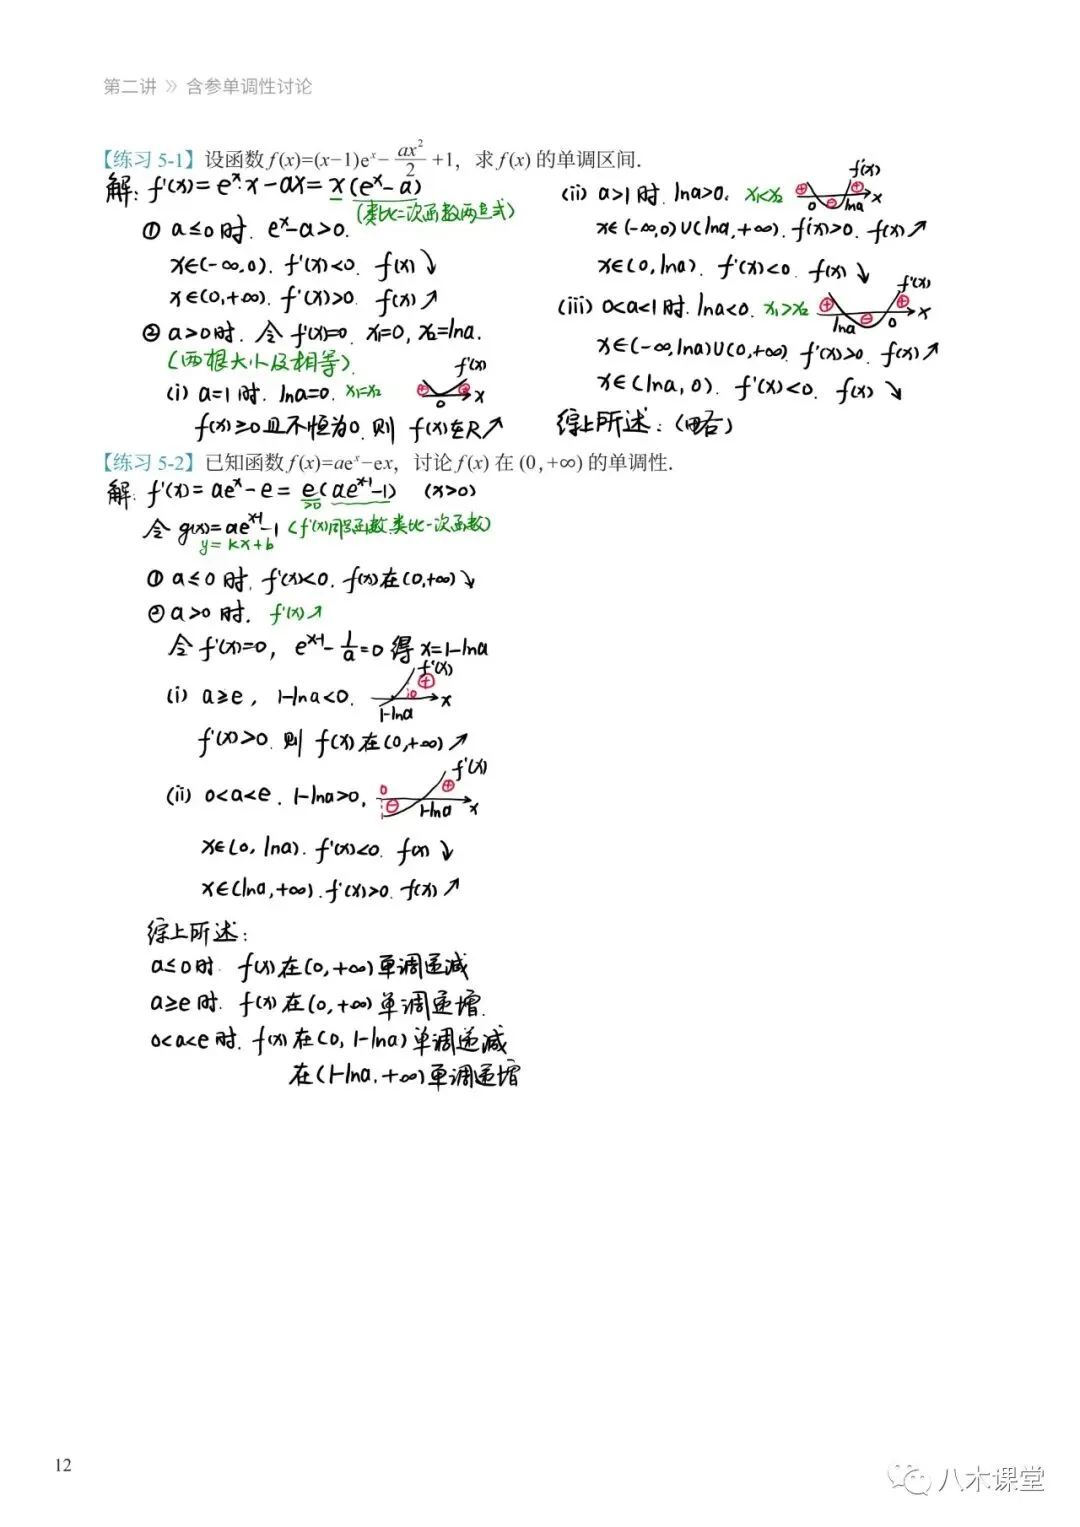 第二讲 》 含参单调性讨论
【练习 5-1】设函数 f(x)=(x−1)eˣ− ax²/2 +1，求 f(x) 的单调区间.
解: f'(x)= eˣ·x − ax = x(eˣ−a)
(类比二次函数两点式)
① a≤0时. eˣ−a>0.
x∈(-∞,0). f'(x)<0. f(x)↘
x∈(0,+∞). f'(x)>0. f(x)↗
② a>0时. 令 f'(x)=0. x₁=0, x₂=lna.
(两根大小及相等).
(i) a=1时. lna=0. x₁=x₂
f'(x)
⊕ ⊕
0 x
f'(x)≥0且不恒为0. 则 f(x)在R↗
(ii) a>1时. lna>0. x₁<x₂
f'(x)
⊕ ⊖ ⊕
0 lna x
x∈(-∞,0)∪(lna,+∞). f'(x)>0. f(x)↗
x∈(0,lna). f'(x)<0. f(x)↘
(iii) 0<a<1时. lna<0. x₁>x₂
f'(x)
⊕ ⊖ ⊕
lna 0 x
x∈(-∞,lna)∪(0,+∞). f'(x)>0. f(x)↗
x∈(lna,0). f'(x)<0. f(x)↘
综上所述: (略)
【练习 5-2】已知函数 f(x)=aeˣ−ex，讨论 f(x) 在 (0,+∞) 的单调性.
解: f'(x)= aeˣ−e = e(aeˣ⁻¹−1) (x>0)
>0
令 g(x)=aeˣ⁻¹−1 (f'(x)同号函数.类比一次函数)
y=kx+b
① a≤0时. f'(x)<0. f(x)在(0,+∞)↘
② a>0时. f'(x)↗
令 f'(x)=0, eˣ⁻¹−1/a=0 得 x=1−lna
(i) a≥e, 1−lna<0.
f'(x)
⊕
0 x
1−lna
f'(x)>0. 则 f(x)在(0,+∞)↗
(ii) 0<a<e. 1−lna>0,
f'(x)
0 ⊕
⊖ 1−lna x
x∈(0, lna). f'(x)<0. f(x)↘
x∈(lna,+∞). f'(x)>0. f(x)↗
综上所述:
a≤0时. f(x)在(0,+∞)单调递减
a≥e时. f(x)在(0,+∞)单调递增.
0<a<e时. f(x)在(0, 1−lna)单调递减
在(1−lna,+∞)单调递增
12
八木课堂